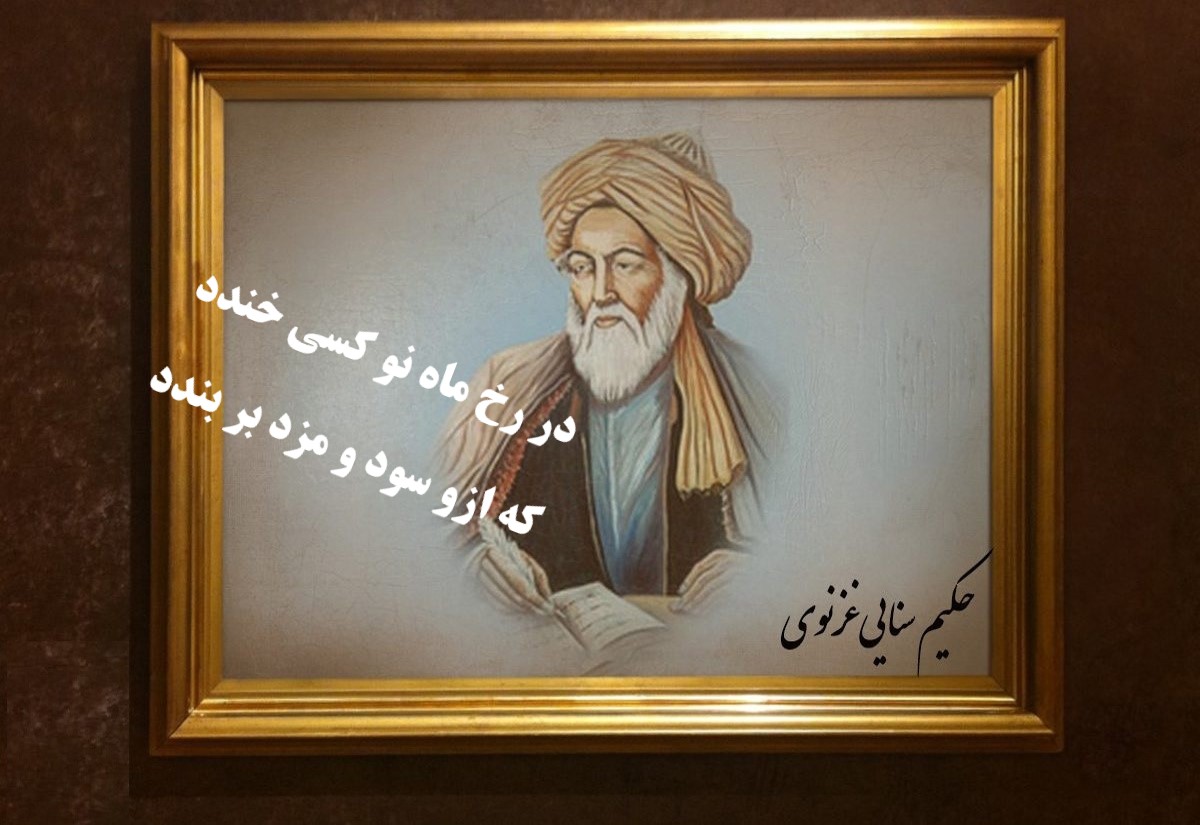 در رخ ماه نو کسی خندد
که ازو سود و مزد بر بندد
حکیم سنایی غزنوی